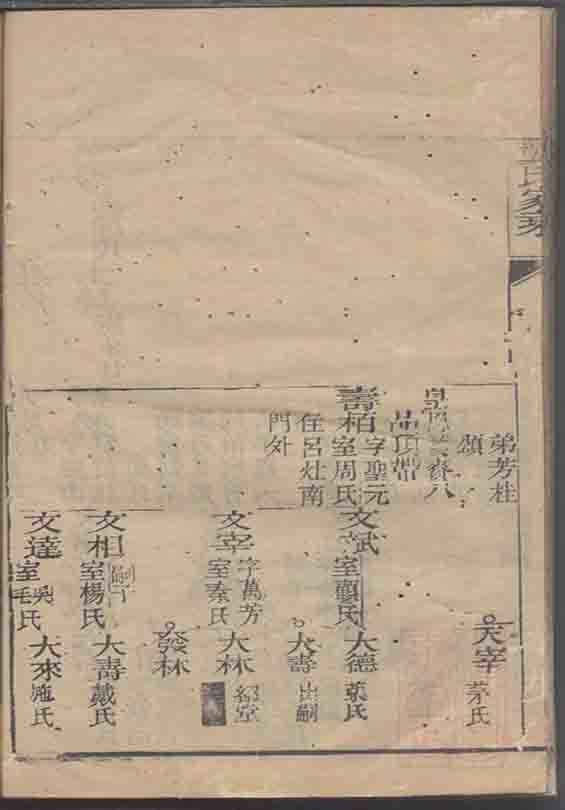 氏家乘
弟芳桂
頌
品頂帶
壽栢
字聖元
室周氏
住呂灶南
門外
大宰
茅氏
文斌
室顧氏
大德
張氏
大壽
出嗣
文宰
字萬芳
室秦氏
大林
紹堂
發林
文相
室楊氏
大壽
戴氏
文達
室吳氏
毛
大來
施氏